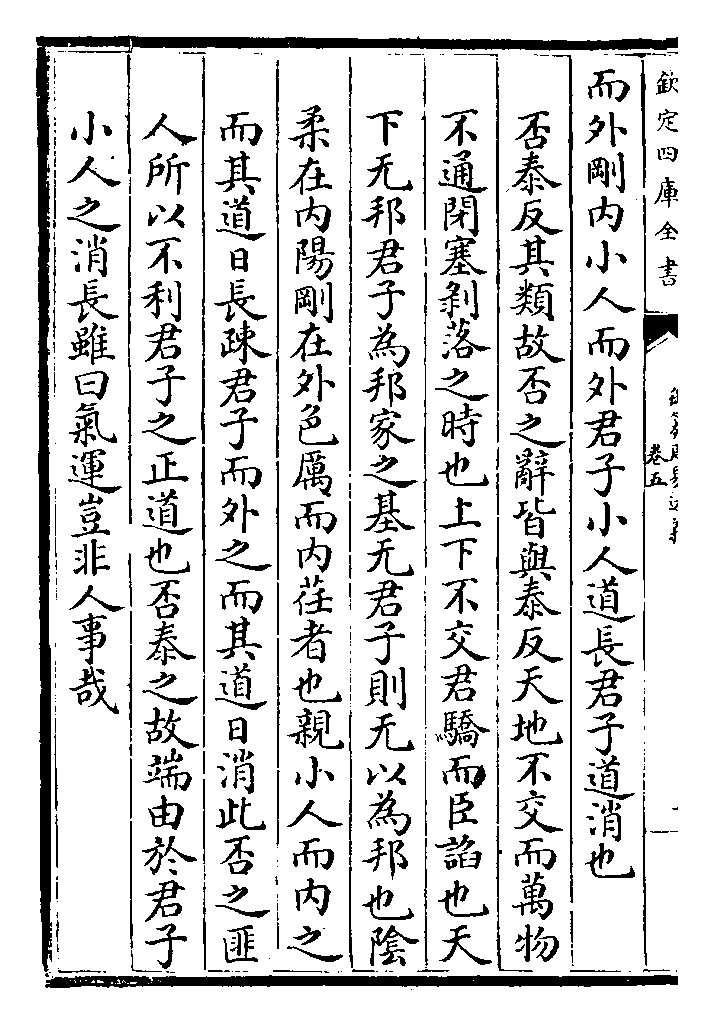 欽定四庫全書
卷五
而外剛内小人而外君子小人道長君子道消也
否泰反其類故否之辭皆與泰反天地不交而萬物
不通閉塞剝落之時也上下不交君驕而臣諂也天
下无邦君子為邦家之基无君子則无以為邦也陰
柔在内陽剛在外色厲而内荏者也親小人而内之
而其道日長疎君子而外之而其道日消此否之匪
人所以不利君子之正道也否泰之故端由於君子
小人之消長雖曰氣運豈非人事哉